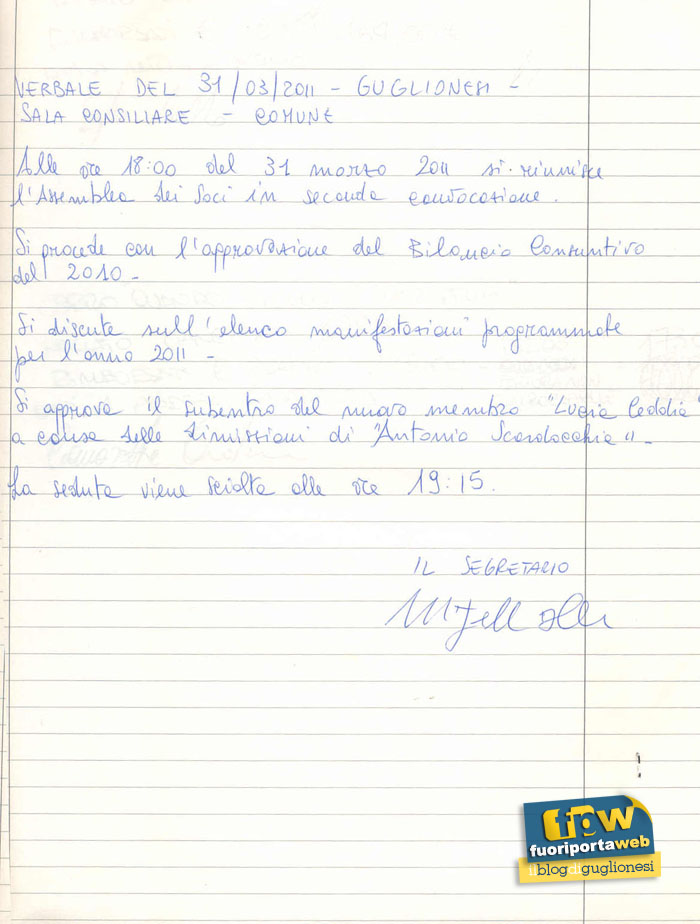 VERBALE DEL 31/03/2011 - GUGLIONESI -
SALA CONSILIARE - COMUNE
Alle ore 18:00 del 31 marzo 2011 si riunisce
l'Assemblea dei Soci in seconda convocazione.
Si procede con l'approvazione del Bilancio Consuntivo
del 2010-
Si discute sull'elenco manifestazioni programmate
per l'anno 2011-
Si approva il subentro del nuovo membro "Lucia Ceddia"
a causa delle dimissioni di "Antonio Scardocchia"-
La seduta viene sciolta alle ore 19:15.
IL SEGRETARIO
fpw
fuoriportaweb
il blog di guglionesi